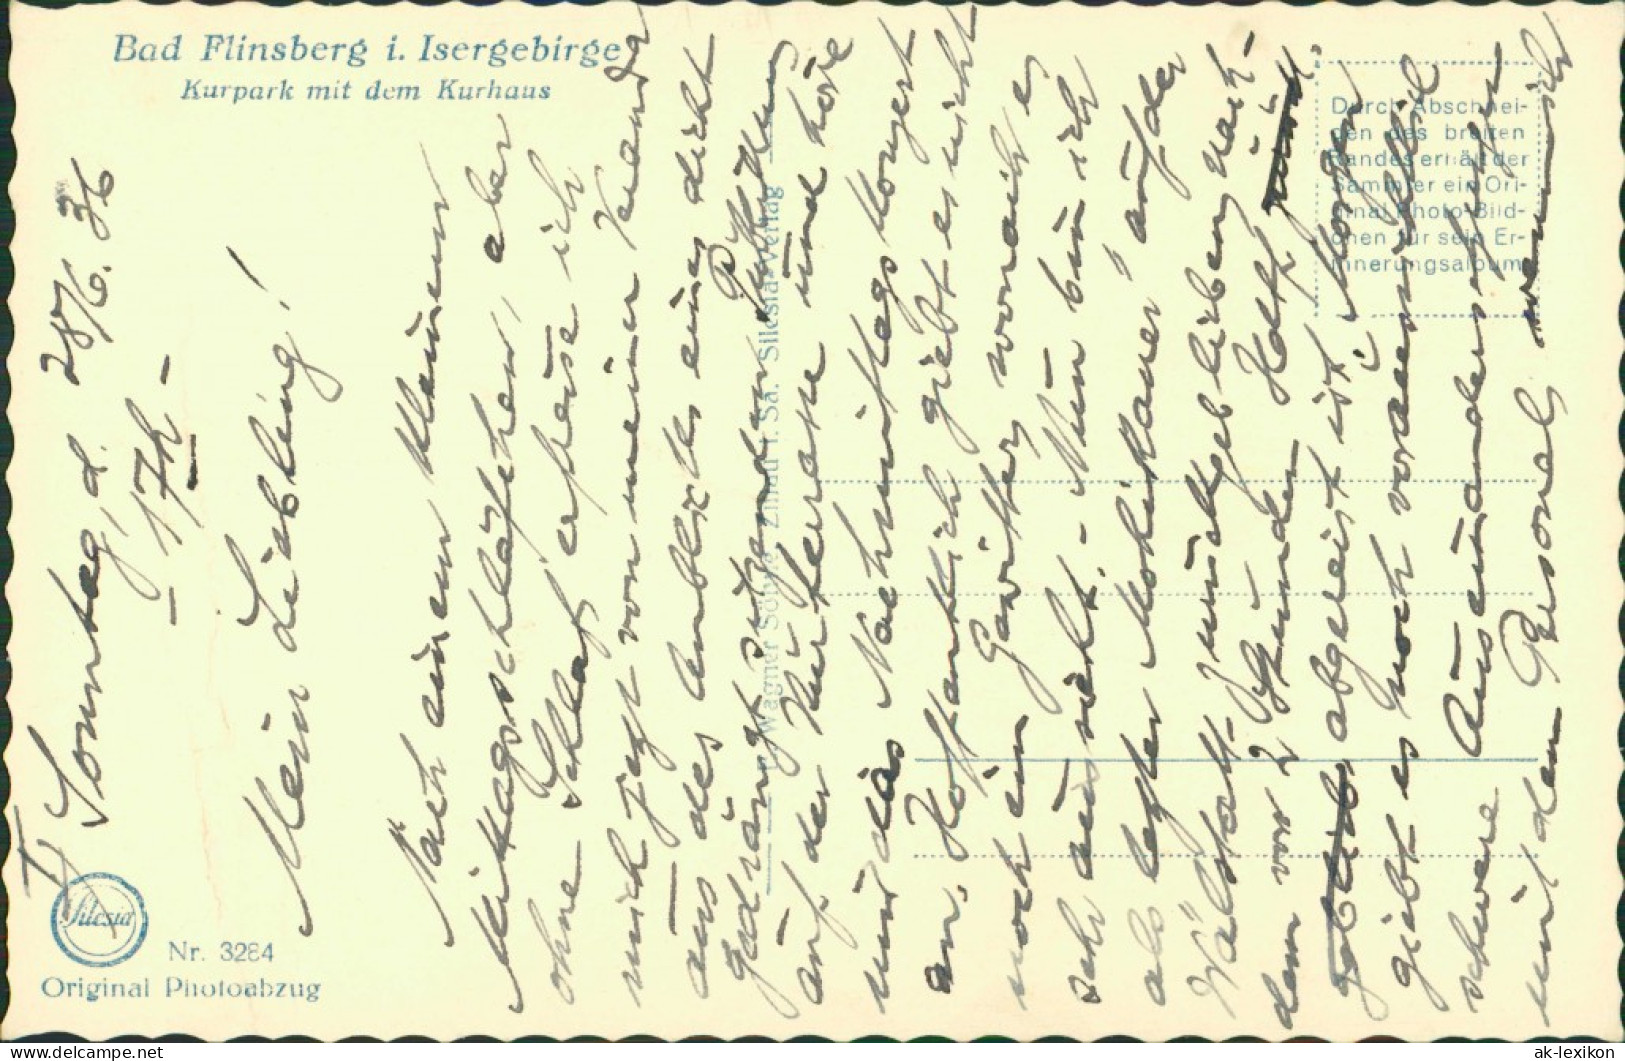 Bad Flinsberg i. Isergebirge
Kurpark mit dem Kurhaus
Durch Abschnei-
den des breiten
Randes erhält der
Sammler ein Ori-
ginal Photo-Bild-
chen für sein Er-
innerungsalbum
Wagner Söhne, Zittau i. Sa. Silesia-Verlag
Silesia
Nr. 3284
Original Photoabzug
I,
Sonntag, d. 28/6. 36
- 17h -
Mein Liebling!
Nach einem kleinen
Mittagsschläfchen, aber
ohne Schlaf erfreue ich
mich jetzt von meiner Veranda
aus des Anblicks eines dicht
gedrängt sitzenden Publikums
auf der Kurterasse und höre
mir das Nachmittagskonzert
an. Hoffentlich giebt es nicht
noch ein Gewitter, wonach es
sehr aussieht. - Nun bin ich
als letzter "Mohikaner" auf der
Walstatt zurückgeblieben, nach-
dem vor 2 Stunden
abgereist ist. Morgen
giebt es noch voraussichtlich
schwere Auseinandersetzungen
mit dem Personal, wenn ich
ak-lexikon